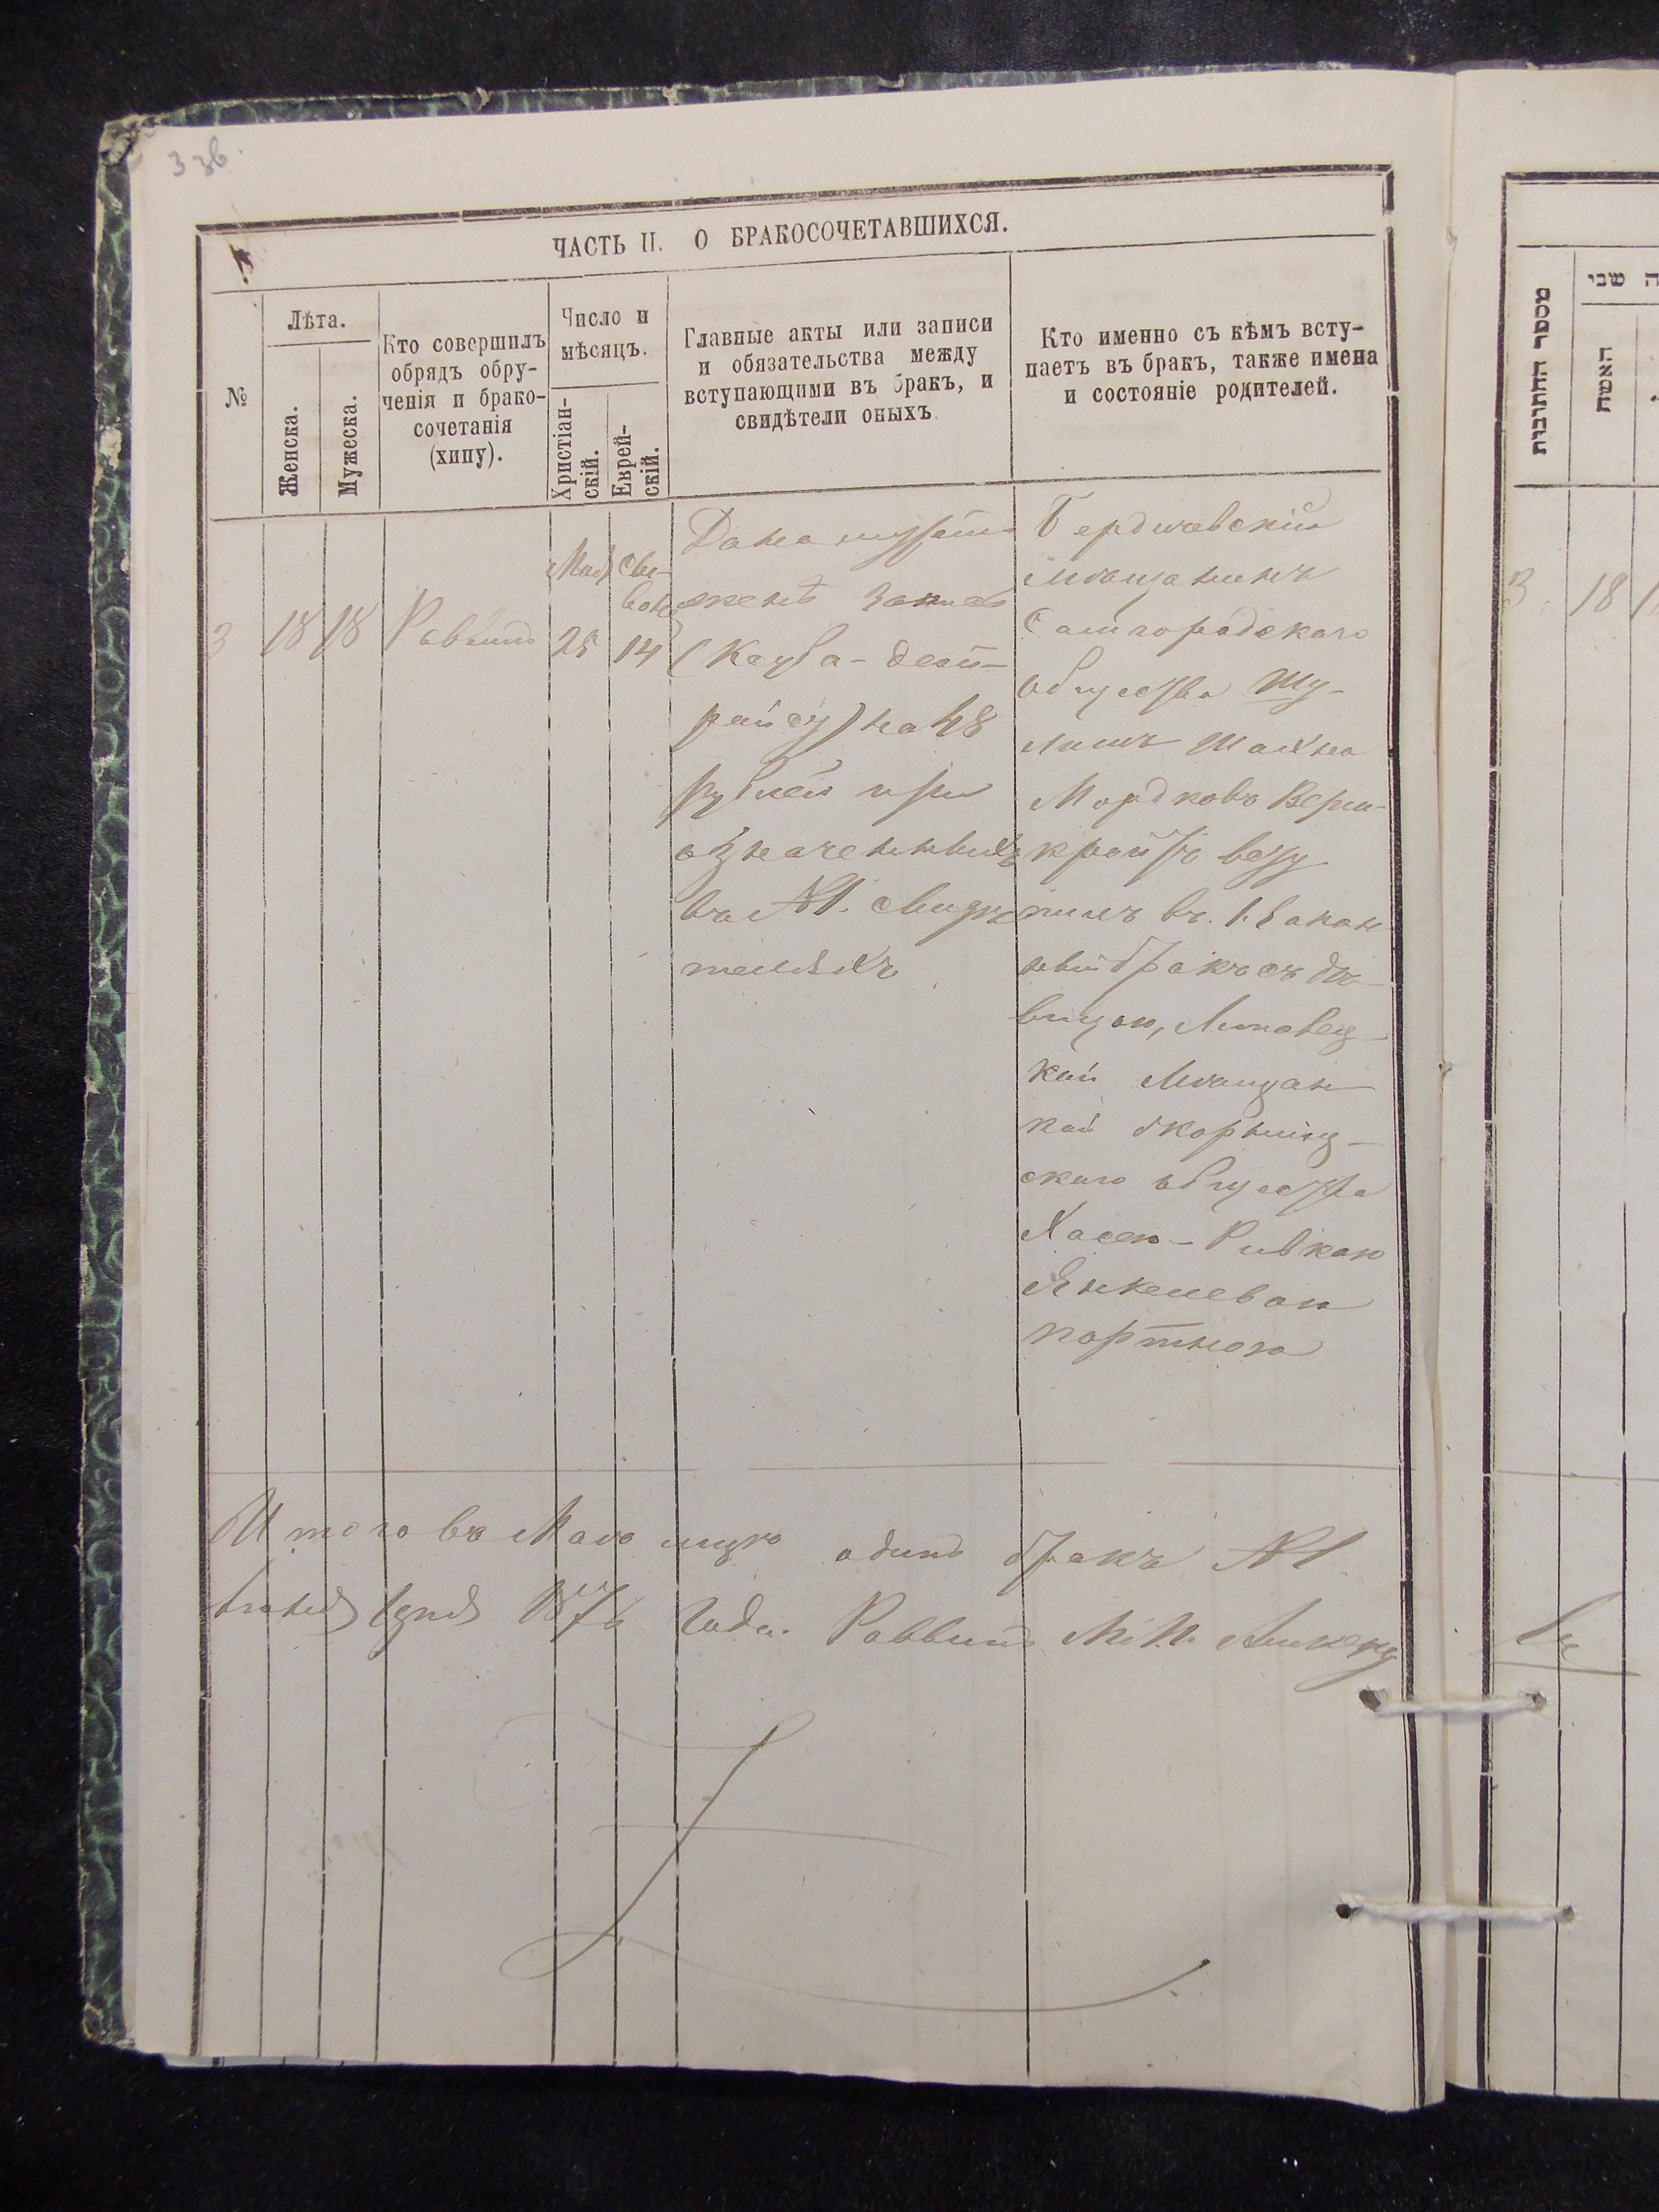 3 зв.
ЧАСТЬ II. О БРАКОСОЧЕТАВШИХСЯ.
№
Лѣта.
Женска.
Мужеска.
Кто совершилъ
обрядъ обру-
ченія и брако-
сочетанія
(хипу).
Число и
мѣсяцъ.
Христіан-
скій.
Еврей-
скій.
Главные акты или записи
и обязательства между
вступающими въ бракъ, и
свидѣтели оныхъ
Кто именно съ кѣмъ всту-
паетъ въ бракъ, также имена
и состояніе родителей.
3
18
18
Раввинъ
Мая
25
Си-
вонъ
14
Дана
женѣ запись
(Кеуба-деай-
райсу) на 48
рублей при
означенныхъ
въ №1. свидѣ
теляхъ
Бердичевскій
мѣщанинъ
Самгородскаго
общества Шу-
лимъ Шахно
Мордковъ Верни-
крайтъ всту
пилъ въ 1. Закон
ный бракъ съ дѣ
вицою, Липовец-
кой мѣщан
кой
скаго общества
Хасею-Ривкою
Янкелевою
Портною
Итого въ Маѣ мцѣ одинъ бракъ №1
Іюня 1 дня 1876 года. Раввинъ М.
מספר החתונות
האשה
3
18